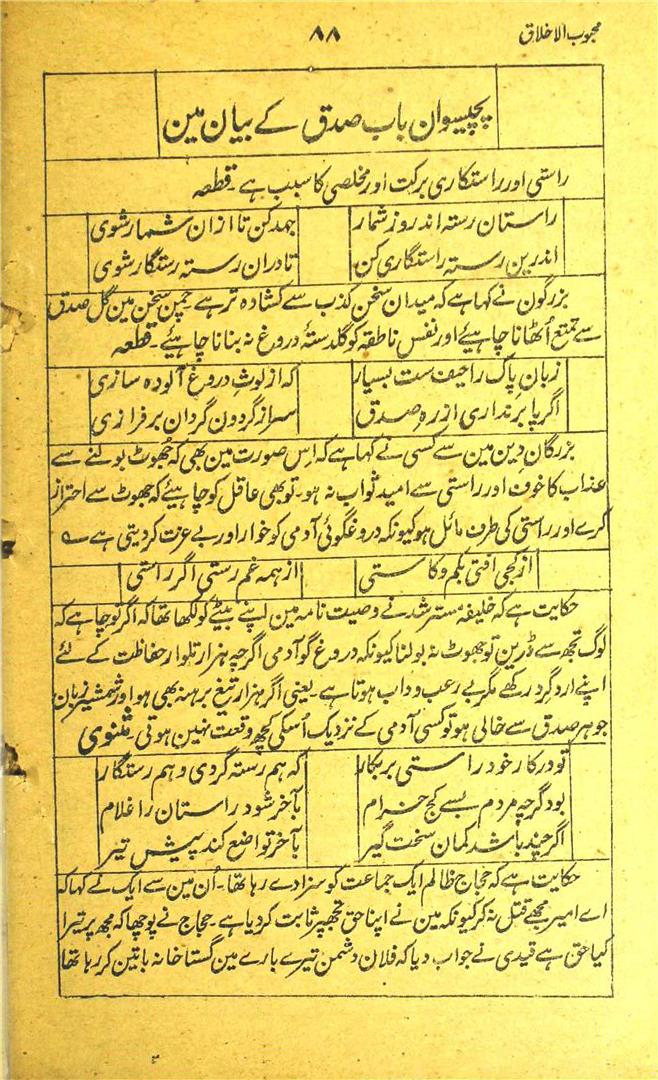 محبوب الاخلاق
۸۸
پچیسوان باب صدق کے بیان مین
راستی اور راستکاری برکت اور مخلصی کا سبب ہے ۔ قطعہ
راستان رستہ اند روز شمار جہد کن تا ازان شمار شوی
اندرین رستہ راستگاری کن تا دران رستہ رستگار شوی
بزرگون نے کہا ہے کہ میدان سخن کذب سے کشادہ تر ہے ۔ چمن سخن مین گل صدق
سے تمتع اُٹھانا چاہیئے اور نفس ناطقہ کو گلدستۂ دروغ نہ بنانا چاہیئے ۔ قطعہ
زبان پاک را حیف ست بسیار کہ از لوث دروغ آلودہ سازی
اگر پا بر نداری از رہ صدق سر از گردون گردان بر فرازی
بزرگان دین مین سے کسی نے کہا ہے کہ اس صورت مین بھی کہ جُھوٹ بولنے سے
عذاب کا خوف اور راستی سے امید ثواب نہ ہو ۔ تو بھی عاقل کو چاہیئے کہ جھوٹ سے احتراز
کرے اور راستی کی طرف مائل ہو کیونکہ دروغگوئی آدمی کو خوار اور بے عزت کر دیتی ہے ؎
از کجی افتی بکم و کاستی از ہمہ غم رستی اگر راستی
حکایت ہے کہ خلیفہ مسترشد نے وصیت نامہ مین اپنے بیٹے کو لکھا تھا کہ اگر تو چاہے کہ
لوگ تجھ سے ڈرین تو جھوٹ نہ بولنا کیونکہ دروغ گو آدمی اگرچہ ہزار تلوار حفاظت کے لئے
اپنے ارد گرد رکھے مگر بے رعب و داب ہوتا ہے ۔ یعنی اگر ہزار تیغ برہنہ بھی ہو اور شمشیر زبان
جوہر صدق سے خالی ہو تو کسی آدمی کے نزدیک اُسکی کچھ وقعت نہین ہوتی ۔ مثنوی
تو در کار خود راستی بر بکار کہ ہم رستہ گردی و ہم رستگار
بود گرچہ مردم بسے کج خرام بآخر شود راستان را غلام
اگر چند باشد کمان سخت گیر بآخر تواضع کند پیش تیر
حکایت ہے کہ حجاج ظالم ایک جماعت کو سزا دے رہا تھا ۔ اُن مین سے ایک نے کہا کہ
اے امیر مجھے قتل نہ کر کیونکہ مین نے اپنا حق تجھپر ثابت کر دیا ہے ۔ حجاج نے پوچھا کہ مجھ پر تیرا
کیا حق ہے قیدی نے جواب دیا کہ فلان دشمن تیرے بارے مین گستاخانہ باتین کر رہا تھا